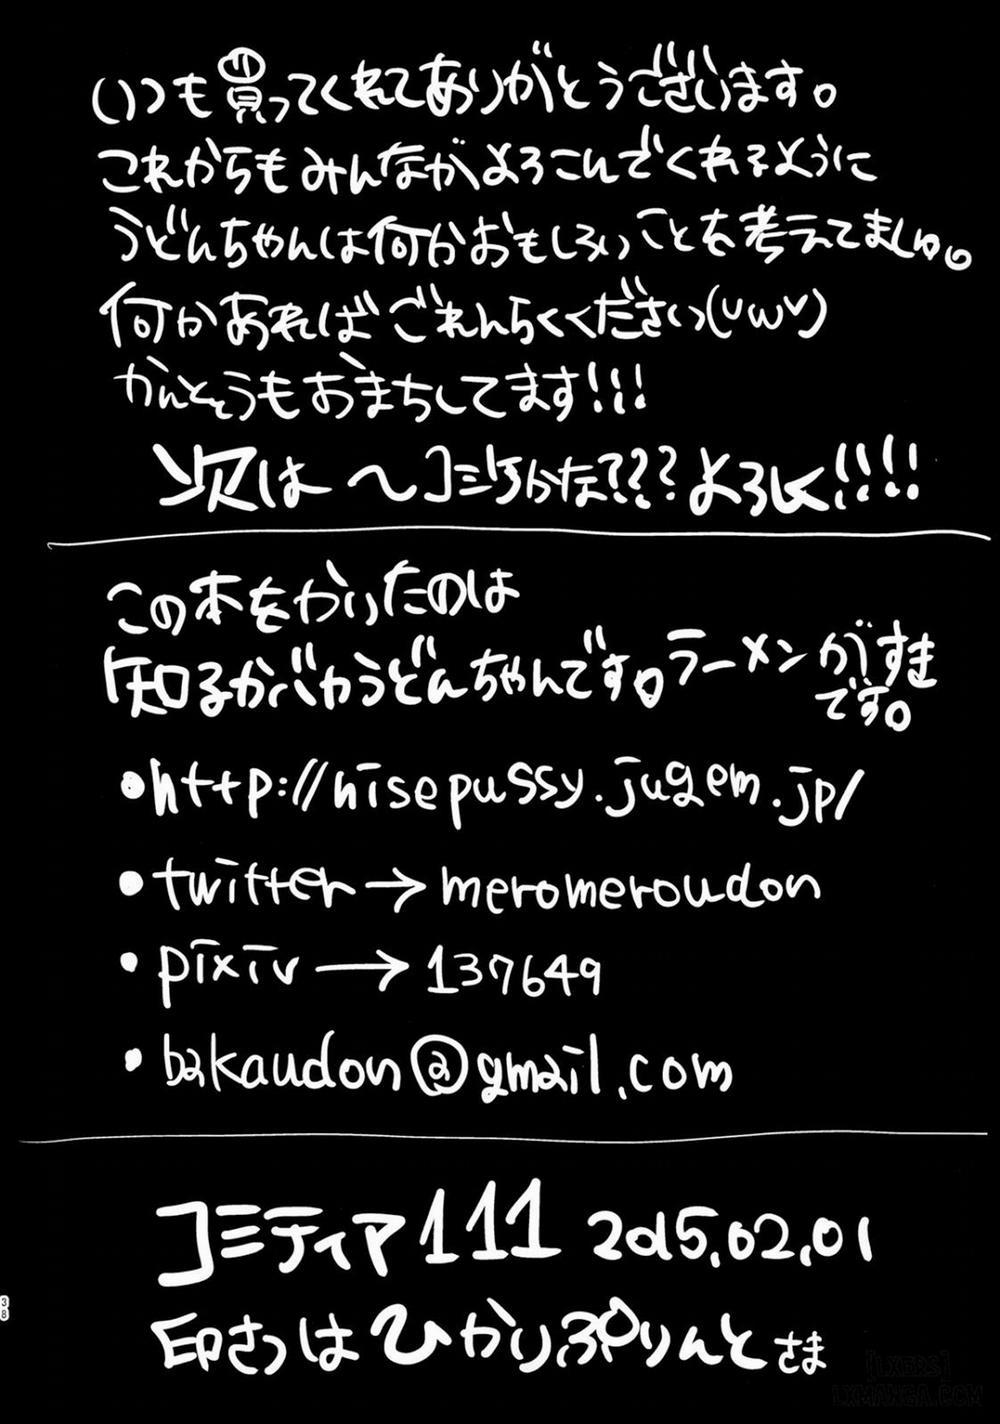 いつも買ってくれてありがとうございます。
これからもみんながよろこんでくれるように
うどんちゃんは何かおもしろいことを考えてましゅ。
何かあればごれんらくください(UωU)
かんそうもおまちしてます!!!
次は〜コミケかな???よろしく!!!!
この本をかいたのは
知るかバカうどんちゃんです。ラーメンがすき
です。
●http://nisepussy.jugem.jp/
●twitter→meromeroudon
●pixiv→137649
●bakaudon@gmail.com
コミティア111 2015.02.01
印さつはひかりぷりんとさま
38
[LXERS]
LXMANGA.COM